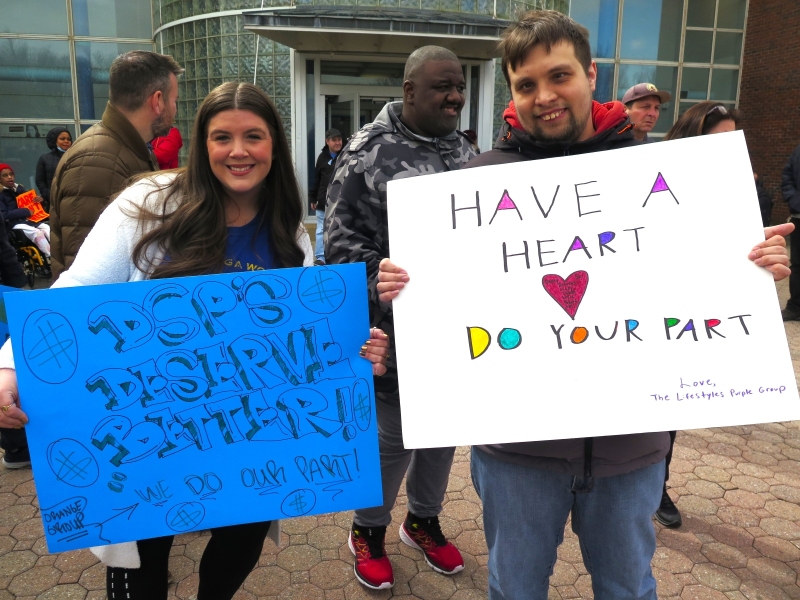 DSP'S
DESERVE
BETTER!!
WE DO OUR PART!
ORANGE
GROUP
HAVE A
HEART
DO YOUR PART
Love,
The Lifestyles Purple Group